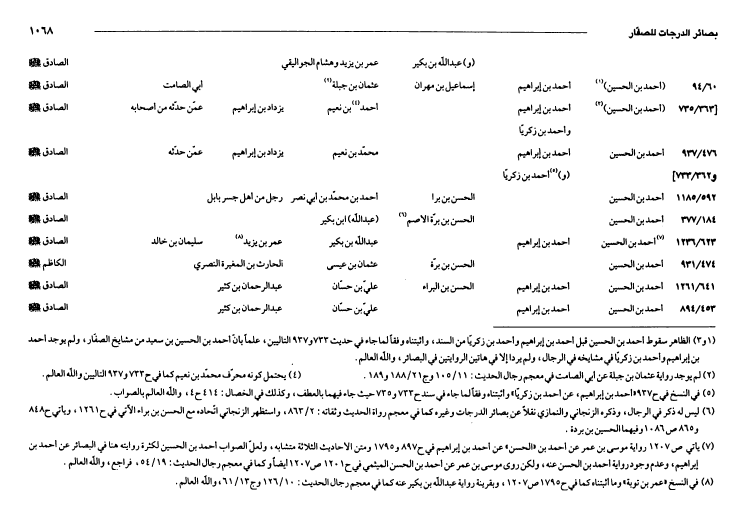 بصائر الدرجات للصفّار ١٠٦٨
(و) عبدالله بن بكير عمر بن يزيد وهشام الجواليقي الصادق ﷺ
٩٤/٦٠ (أحمد بن الحسين)(١) أحمد بن إبراهيم إسماعيل بن مهران عثمان بن جبلة(٢) أبي الصامت الصادق ﷺ
[٧٣٥/٣٦٣ (أحمد بن الحسين)(٣) أحمد بن إبراهيم أحمد(٤) بن نعيم يزداد بن إبراهيم عمّن حدّثه من أصحابه الصادق ﷺ
وأحمد بن زكريّا
٩٣٧/٤٧٦ أحمد بن الحسين أحمد بن إبراهيم محمّد بن نعيم يزداد بن إبراهيم عمّن حدّثه الصادق ﷺ
و٧٣٣/٣٦٢] (و)(٥) أحمد بن زكريّا
١١٨٥/٥٩٢ أحمد بن الحسين الحسن بن برا أحمد بن محمّد بن أبي نصر رجل من أهل جسر بابل الصادق ﷺ
٣٧٧/١٨٤ أحمد بن الحسين الحسن بن برّة الأصم(٦) (عبدالله) ابن بكير الصادق ﷺ
١٢٣٦/٦٢٣ (٧) أحمد بن الحسين أحمد بن إبراهيم عبدالله بن بكير عمر بن يزيد(٨) سليمان بن خالد الصادق ﷺ
٩٣١/٤٧٤ أحمد بن الحسين الحسن بن برّة عثمان بن عيسى الحارث بن المغيرة النصري الكاظم ﷺ
١٢٦١/٦٤١ أحمد بن الحسين أحمد بن إبراهيم الحسن بن البراء عليّ بن حسّان عبدالرحمان بن كثير الصادق ﷺ
٨٩٤/٤٥٣ أحمد بن الحسين أحمد بن إبراهيم عليّ بن حسّان عبدالرحمان بن كثير الصادق ﷺ
(١ و٣) الظاهر سقوط أحمد بن الحسين قبل أحمد بن إبراهيم وأحمد بن زكريّا من السند، وأثبتناه وفقاً لما جاء في حديث ٧٣٣ و٩٣٧ التاليين، علماً بأنّ أحمد بن الحسين بن سعيد من مشايخ الصفّار، ولم يوجد أحمد
بن إبراهيم وأحمد بن زكريّا في مشايخه في الرجال، ولم يردا إلا في هاتين الروايتين في البصائر، والله العالم.
(٢) لم يوجد رواية عثمان بن جبلة عن أبي الصامت في معجم رجال الحديث: ١٠٥/١١ وج١٨٨/٢١ و١٨٩. (٤) يحتمل كونه محرّف محمّد بن نعيم كما في ح٧٣٣ و٩٣٧ التاليين والله العالم.
(٥) في النسخ في ح٩٣٧ «أحمد بن إبراهيم، عن أحمد بن زكريّا» وأثبتناه وفقاً لما جاء في سند ح٧٣٣ و٧٣٥ حيث جاء فيهما بالعطف، وكذلك في الخصال: ٤١٤ ح٤، والله العالم بالصواب.
(٦) ليس له ذكر في الرجال، وذكره الزنجاني والنمازي نقلاً عن بصائر الدرجات وغيره كما في معجم رواة الحديث وثقاته: ٨٦٣/٢، واستظهر الزنجاني اتّحاده مع الحسن بن براء الآتي في ح١٢٦١، ويأتي ح٨٤٨
و٨٦٥ ص١٠٨٦ وفيهما الحسين بن بردة.
(٧) يأتي ص ١٢٠٧ رواية موسى بن عمر عن أحمد بن «الحسن» عن أحمد بن إبراهيم في ح٨٩٧ و١٧٩٥ ومتن الأحاديث الثلاثة متشابه، ولعلّ الصواب أحمد بن الحسين لكثرة روايته هنا في البصائر عن أحمد بن
إبراهيم، وعدم وجود رواية أحمد بن الحسن عنه، ولكن روى موسى بن عمر عن أحمد بن الحسن الميثمي في ح١٢٠١ ص١٢٠٧ أيضاً وكما في معجم رجال الحديث: ٥٤/١٩، فراجع، والله العالم.
(٨) في النسخ «عمر بن توبة» وما أثبتناه كما في ح١٧٩٥ ص١٢٠٧، وبقرينة رواية عبدالله بن بكير عنه كما في معجم رجال الحديث: ١٢٦/١٠ وج٦١/١٣، والله العالم.